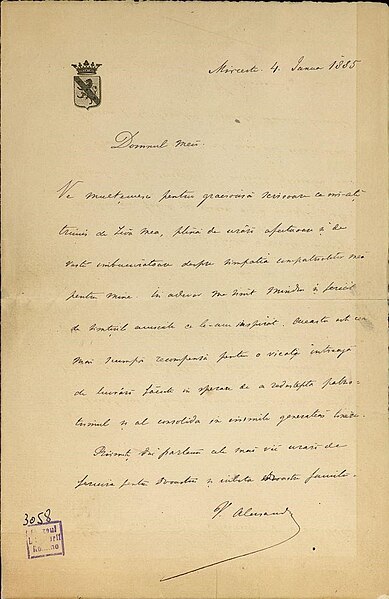 Mircesti. 4. Ianuar 1885
Domnul meu.
Ve multumesc pentru gratioasa scrisoare ce mi-ati
trimis de ziua mea, plină de urări afectuoase și de
veste imbucuratoare despre simpatia compatriotilor mei
pentru mine. In adevăr me simt mindru și fericit
de simtirile ce le-am inspirat. Aceasta este cea
mai scumpă recompensă pentru o vieată intreagă
de lucrări făcute in sperare de a redestepta patrio-
tismul și al consolida in inimile generatiei
Primiti, din parte-mi cele mai vii urări de
fericire pentru Dvoastră și familie.
V. Alecsandri
3058
Muzeul
Român